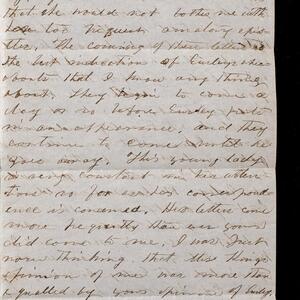 that she would not bother me with
too frequent amatory epis-
tles. The coming of these letters is
the best indication of Curleys where
abouts that I know any thing
about. They begin to come a
day or so before Curley puts
in an appearance, and they
continue to come until he
goes away. This young lady
is very constant in her atten-
tions so far as correspond
ence is concerned. Her letters come
more frequently than ever yours
did come to me. I was just
now thinking that this things
opinion of me was more than
equalled by your opinion of Curley,